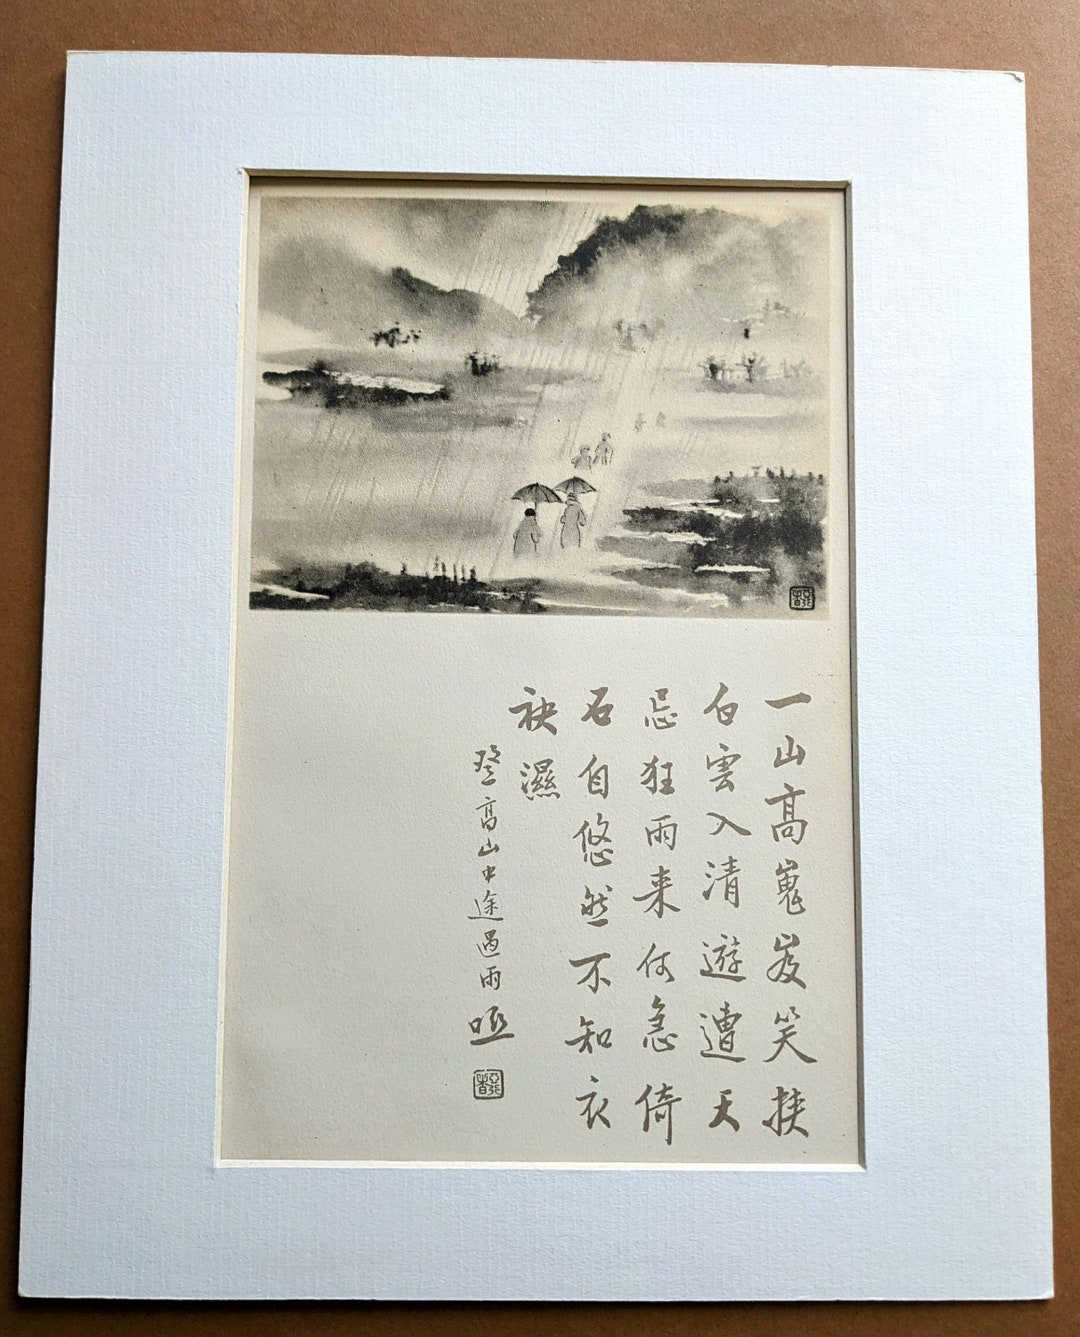 一山高嵬岌笑挾
白雲入清遊遭天
忌狂雨来何急倚
石自悠然不知衣
袂濕
登高山中途遇雨 啞